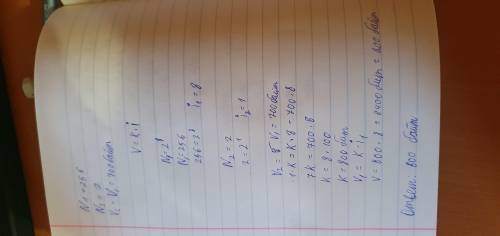 N₁ = 256
N₂ = 2
V₂ - V₁ = 700 байт
V = K · i
N₁ = 2ⁱ
N₁ = 256
256 = 2⁸
i₁ = 8
N₂ = 2
2 = 2¹
i₂ = 1
1 · K = K · 8 - 700 · 8
7 · K = 700 · 8
K = 8 · 100
K = 800 бит
V₁ = K · i₁
V = 800 · 8 = 6400 бит = 800 байт
Ответ: 800 байт